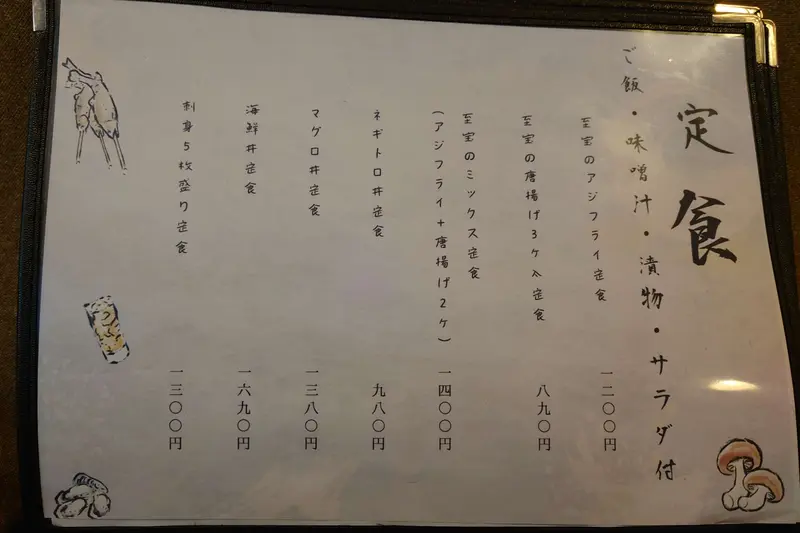 定食
ご飯・味噌汁・漬物・サラダ付
至宝のアジフライ定食 一二〇〇円
至宝の唐揚げ3ケ入定食 八九〇円
至宝のミックス定食
(アジフライ+唐揚げ2ケ) 一四〇〇円
ネギトロ丼定食 九八〇円
マグロ丼定食 一三八〇円
海鮮丼定食 一六九〇円
刺身5枚盛り定食 一三〇〇円